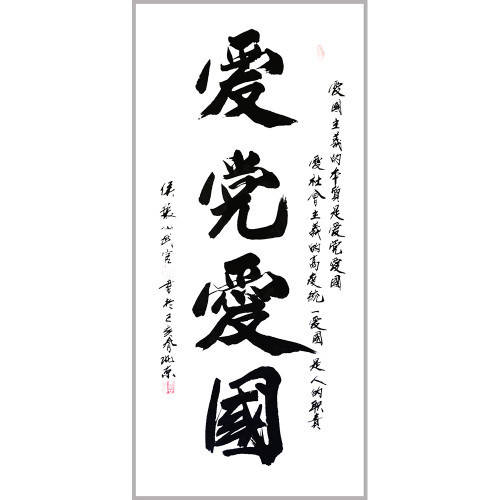 愛國主義的本質是愛党愛國
愛社會主義的高度統一愛國是人的职責
爱党愛國
書於己亥春